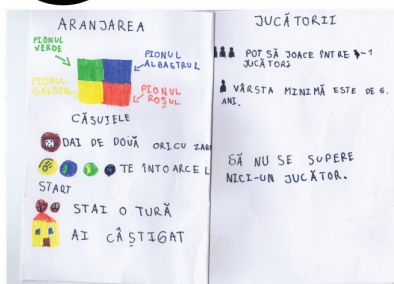 ARANJAREA
PIONUL
VERDE
PIONUL
ALBASTRUL
PIONUL
GALBEN
PIONUL
ROȘUL
CĂSUȚELE
DAI DE DOUĂ ORI CU ZARU
TE ÎNTOARCE L
START
STAI O TURĂ
AI CÂȘTIGAT
JUCĂTORII
POT SĂ JOACE ÎNTRE -1
JUCĂTORI
VÂRSTA MINIMĂ ESTE DE 6.
ANI.
SĂ NU SE SUPERE
NICI-UN JUCĂTOR.